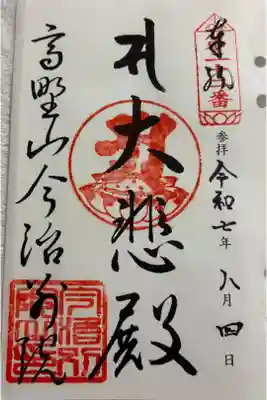 番
参拝 令和七年 八月 四 日
大悲殿
高野山今治別院